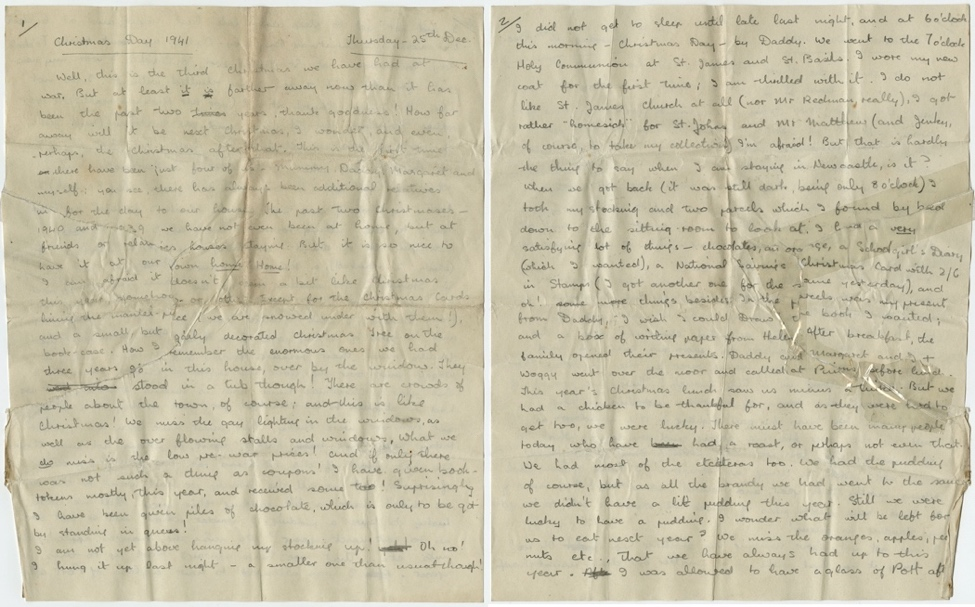 1
Christmas Day 1941 Thursday - 25th Dec.
Well, this is the third Christmas we have had at
war. But at least it is farther away now than it has
been the past two years, thank goodness! How far
away will it be next Christmas, I wonder, and even,
perhaps, the Christmas after that. This is the first time
there have been just four of us - Mummy, Daddy, Margaret and
myself: you see, there has always been additional relatives
in for the day to our house. The past two Christmases -
1940 and 1939 we have not even been at home, but at
friends or relatives houses staying. But it is so nice to
have it at our own home! Home!
I am afraid it doesn't seem a bit like Christmas
this year somehow or other. Except for the Christmas Cards
lining the mantel-piece (we are snowed under with them!),
and a small but gaily decorated Christmas tree on the
book-case. How I remember the enormous ones we had
three years ago in this house, over by the window. They
stood in a tub though! There are crowds of
people about the town, of course; and this is like
Christmas! We miss the gay lighting in the windows, as
well as the over flowing stalls and windows, What we
do miss is the low pre-war prices! and if only there
was not such a thing as coupons! I have given book-
tokens mostly this year, and received some too! Surprisingly
I have been given piles of chocolate, which is only to be got
by standing in queues!
I am not yet above hanging my stocking up! Oh no!
I hung it up last night - a smaller one than usual though!
2
I did not get to sleep until late last night, and at 6 o'clock
this morning - Christmas Day - by Daddy. We went to the 7 o'clock
Holy Communion at St. James and St. Basils. I wore my new
coat for the first time; I am thrilled with it. I do not
like St. James' Church at all (nor Mr Redman, really), I got
rather "homesick" for St. Johns and Mr Matthews (and Jenky,
of course, to take my collection) I'm afraid! But that is hardly
the thing to say when I am staying in Newcastle, is it?
When we got back (it was still dark, being only 8 o'clock) I
took my stocking and two parcels which I found by bed
down to the sitting-room to look at. I had a very
satisfying lot of things - chocolates, an orange, a Schoolgirl's Diary,
(which I wanted), a National Savings Christmas Card with 2/6
in Stamps (I got another one for the same yesterday), and
oh! some more things besides. In the parcels was my present
from Daddy, 'I wish I could Draw' the book I wanted;
and a box of writing paper from Helen. After breakfast, the
family opened their presents. Daddy and Margaret and I +
Woggy went over the moor and called at before lunch.
This year's Christmas lunch saw us minus a turkey. But we
had a chicken to be thankful for, and as they were hard to
get too, we were lucky. There must have been many people
today who have had a roast, or perhaps not even that.
We had most of the etceteras too. We had the pudding
of course, but as all the brandy we had went to the sauce
we didn't have a lit pudding this year. Still we were
lucky to have a pudding. I wonder what will be left for
us to eat next year? We miss the oranges, apples,
nuts etc., That we have always had up to this
year. I was allowed to have a glass of Port